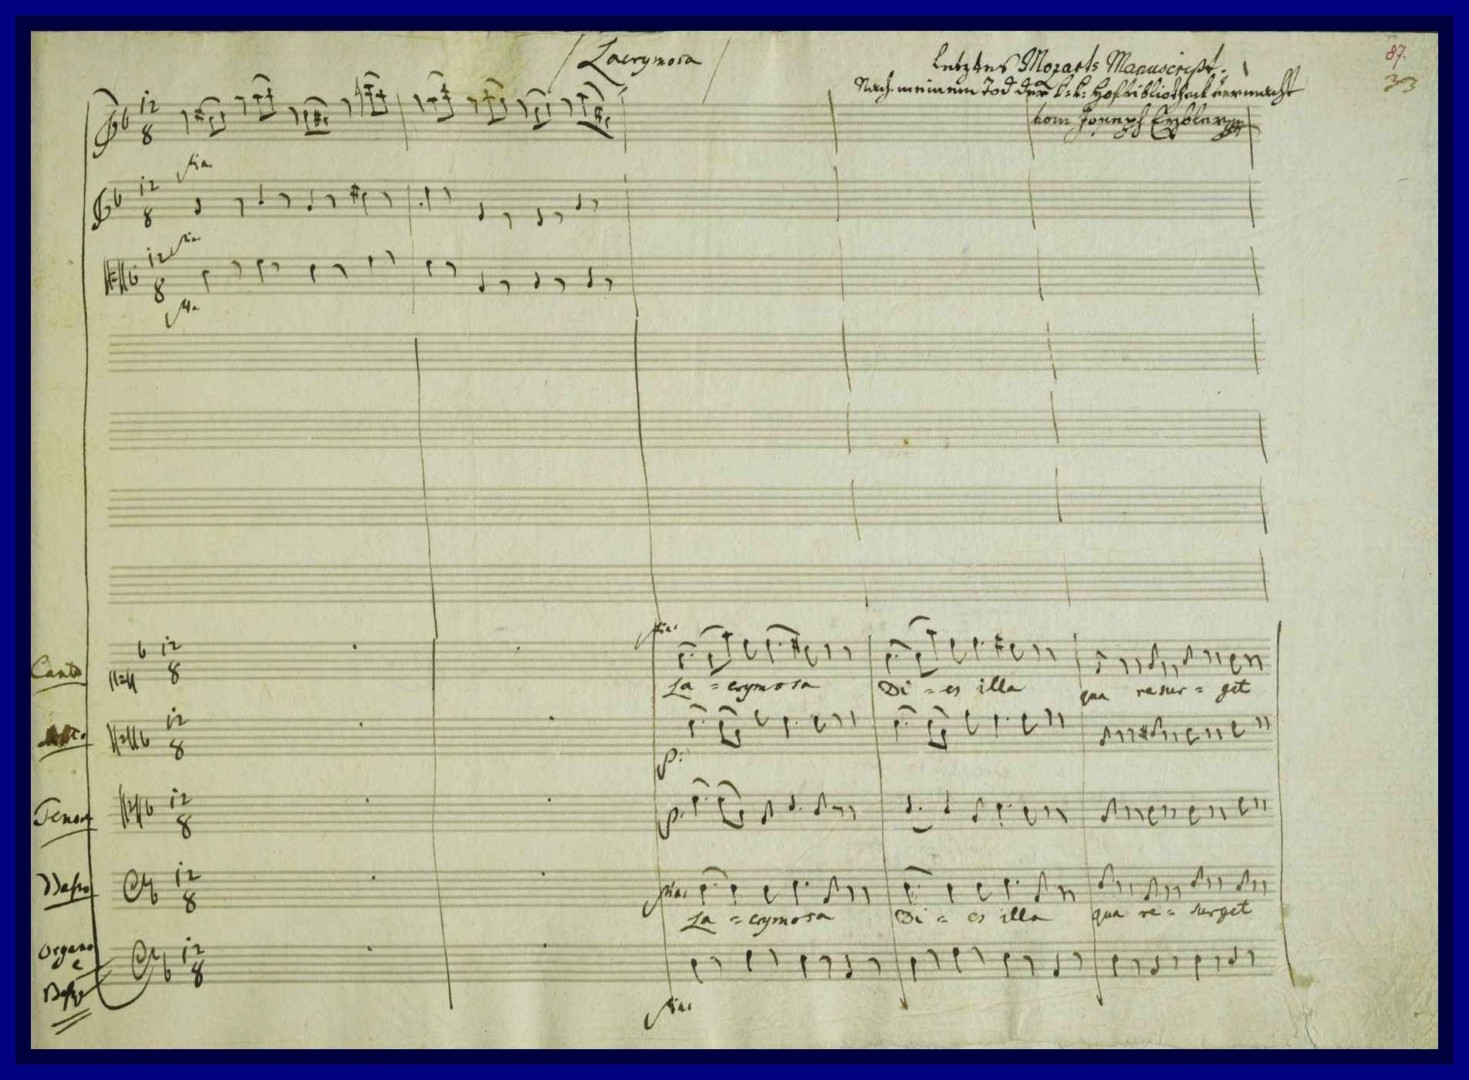 Lacrymosa
letztes Mozarts Manuscript.
Nach meinem Tod der k: k: Hofbibliothek vermacht
von Joseph Eybler
87.
33
12
8
pia.
12
8
pia
12
8
pia
Canto
12
8
pia:
La = crymosa Di = es illa qua resur = get
Alto
12
8
p:
Tenore
12
8
p:
Basso
12
8
pia:
La = crymosa Di = es illa qua re = surget
Organo
e
Basso
12
8
pia: